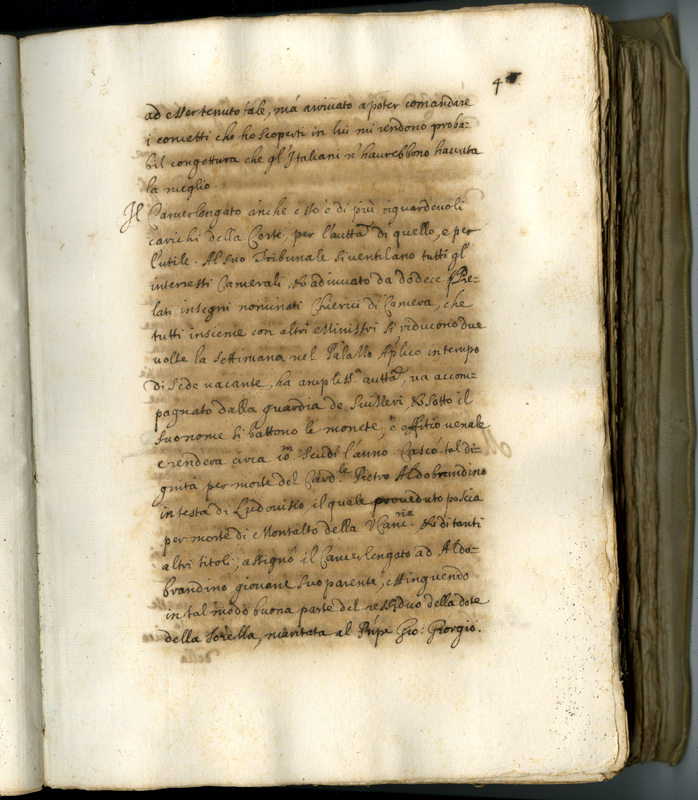 4
ad esser tenuto tale, mà arrivato a poter comandare
i concetti che ho scoperti in lui mi rendono proba-
bil congettura che gl'Italiani n'haurebbono hauuta
la meglio.
Il Camerlengato anche esso è di più riguardeuoli
carichi della Corte, per l'autta di quello, e per
l'utile. Al suo Tribunale si ventilano tutti gl'
interessi Camerali, & adiuuato da dodece Pre-
lati insegni nominati Chierici di Camera, che
tutti insieme con altri Ministri si riducono due
volte la settimana nel Palazzo Aplico in tempo
di Sede vacante, ha ampliss.a autta, va accom-
pagnato dalla guardia de Suizzeri, & sotto il
suo nome si battono le monete, è offitio uenale
e rendeva circa 10.m scudi l'anno. Cascò tal di-
gnità per morte del Card.le Pietro Aldobrandino
in testa di Ludouisio, il quale proueduto poscia
per morte di Montalto della VCanc.ria & di tanti
altri titoli, assignò il Camerlengato ad Aldo-
brandino giouane suo parente, estinguendo
in tal modo buona parte del residuo della dote
della sorella, maritata al Prñpe Gio: Giorgio.
della